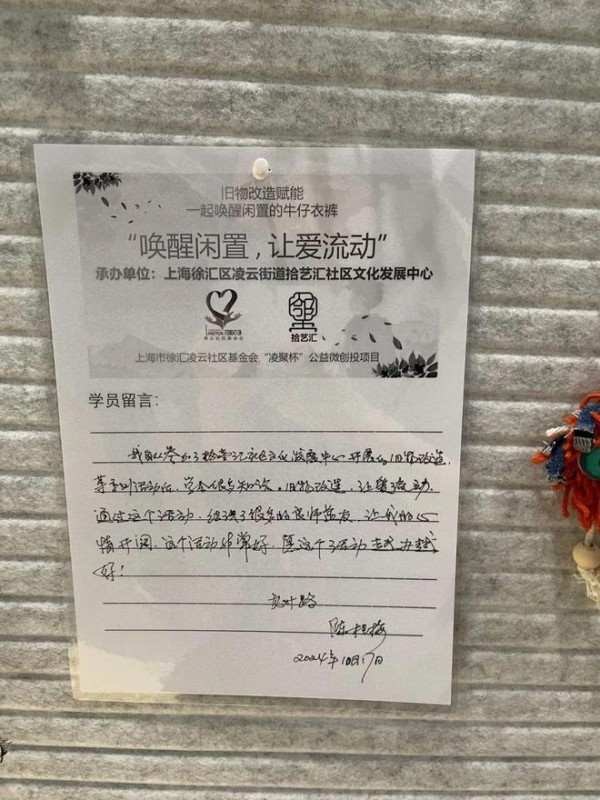 旧物改造赋能
一起唤醒闲置的牛仔衣裤
“唤醒闲置，让爱流动”
承办单位：上海徐汇区凌云街道拾艺汇社区文化发展中心
拾艺汇
上海市徐汇凌云社区基金会“凌聚杯”公益微创投项目
学员留言：
我自从参加了拾艺汇社区文化发展中心开展的旧物改造，
系列活动后，学会很多知识。旧物改造，让爱流动，
通过这个活动，结识了很多的良师益友，让我的心
情开阔，这个活动非常好，愿这个活动越办越
好！
陈桂梅
2024年10月17日